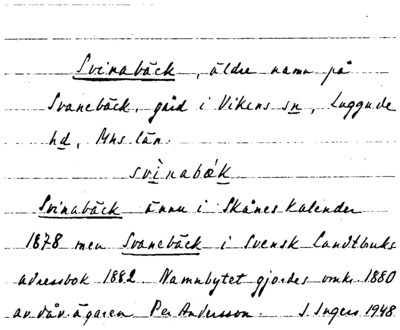 Svinabäck, äldre namn på
Svanebäck, gård i Vikens sn, Luggude
hd, Mhs län.
svìnabák
Svinabäck ännu i Skånes Kalender
1878 men Svanebäck i Svensk Landtbruks
adressbok 1882. Namnbytet gjordes omkr. 1880
av dåv. ägaren Per Andersson. S. Ingers 1948